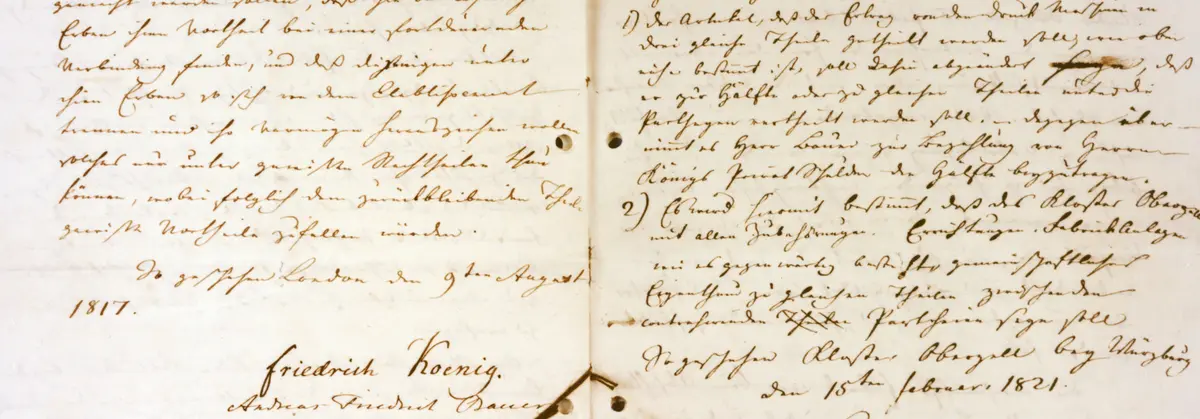 gemacht werden sollen, daß
Erben ihren Vortheil bei einer fortdauernden
Verbindung finden, und daß diejenigen unter
ihren Erben so sich von dem Etablissement
trennen und ihr Vermögen herausziehen wollen
solches nur unter gewissen Nachtheilen thun
können, wobei folglich dem zurückbleibenden Theile
gewisse Vortheile zufallen würden.
So geschehen London den 9ten August
1817.
Friedrich Koenig.
Andreas Friedrich Bauer
1) der Artikel, daß der Ertrag von den Druck Maschinen in
drei gleiche Theile getheilt werden soll, wie oben
bestimmt ist, soll dahin abgeändert daß
er zur Hälfte oder zu gleichen Theilen unter die
Partheyen vertheilt werden soll dagegen über-
nimmt es Herr Bauer zur Bezahlung von Herrn
Königs Privat Schulden die Hälfte beyzutragen.
2) Es wird hiermit bestimmt, daß das Kloster Oberzell
mit allen Zubehörungen. Errichtungen. Fabrickanlagen
wie es gegenwärtig besteht gemeinschaftliches
Eigenthum zu gleichen Theilen zwischen den
contrahirenden Partheien seyn soll
So geschehen Kloster Oberzell bey Würzburg
den 15ten Februar 1821.